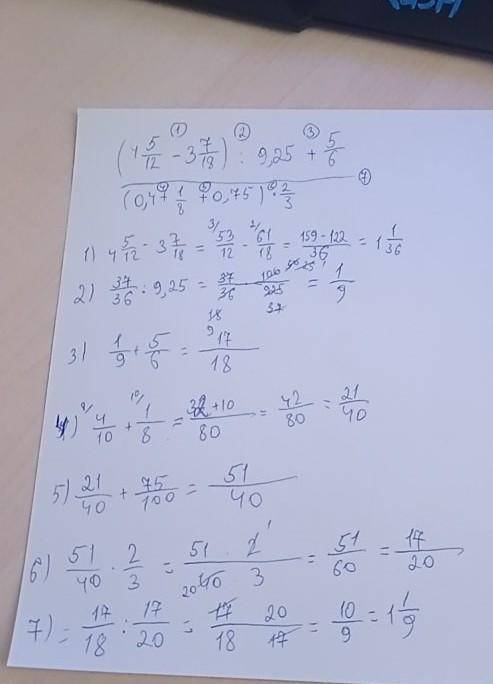 ① ② ③
(4 5/12 − 3 7/18) : 9,25 + 5/6
(0,4 + 1/8 + 0,75) · 2/3 ⑦
1) 4 5/12 − 3 7/18 = 3/ 53/12 − 2/ 61/18 = 159−122/36 = 1 1/36
2) 37/36 : 9,25 = 37/36 · 100/925 = 1/9
3) 1/9 + 5/6 = 17/18
4) 8/ 4/10 + 10/ 1/8 = 32+10/80 = 42/80 = 21/40
5) 21/40 + 75/100 = 51/40
6) 51/40 · 2/3 = 51 · 2 1/20 40 · 3 = 51/60 = 17/20
7) = 17/18 : 17/20 = 17 20/18 17 = 10/9 = 1 1/9